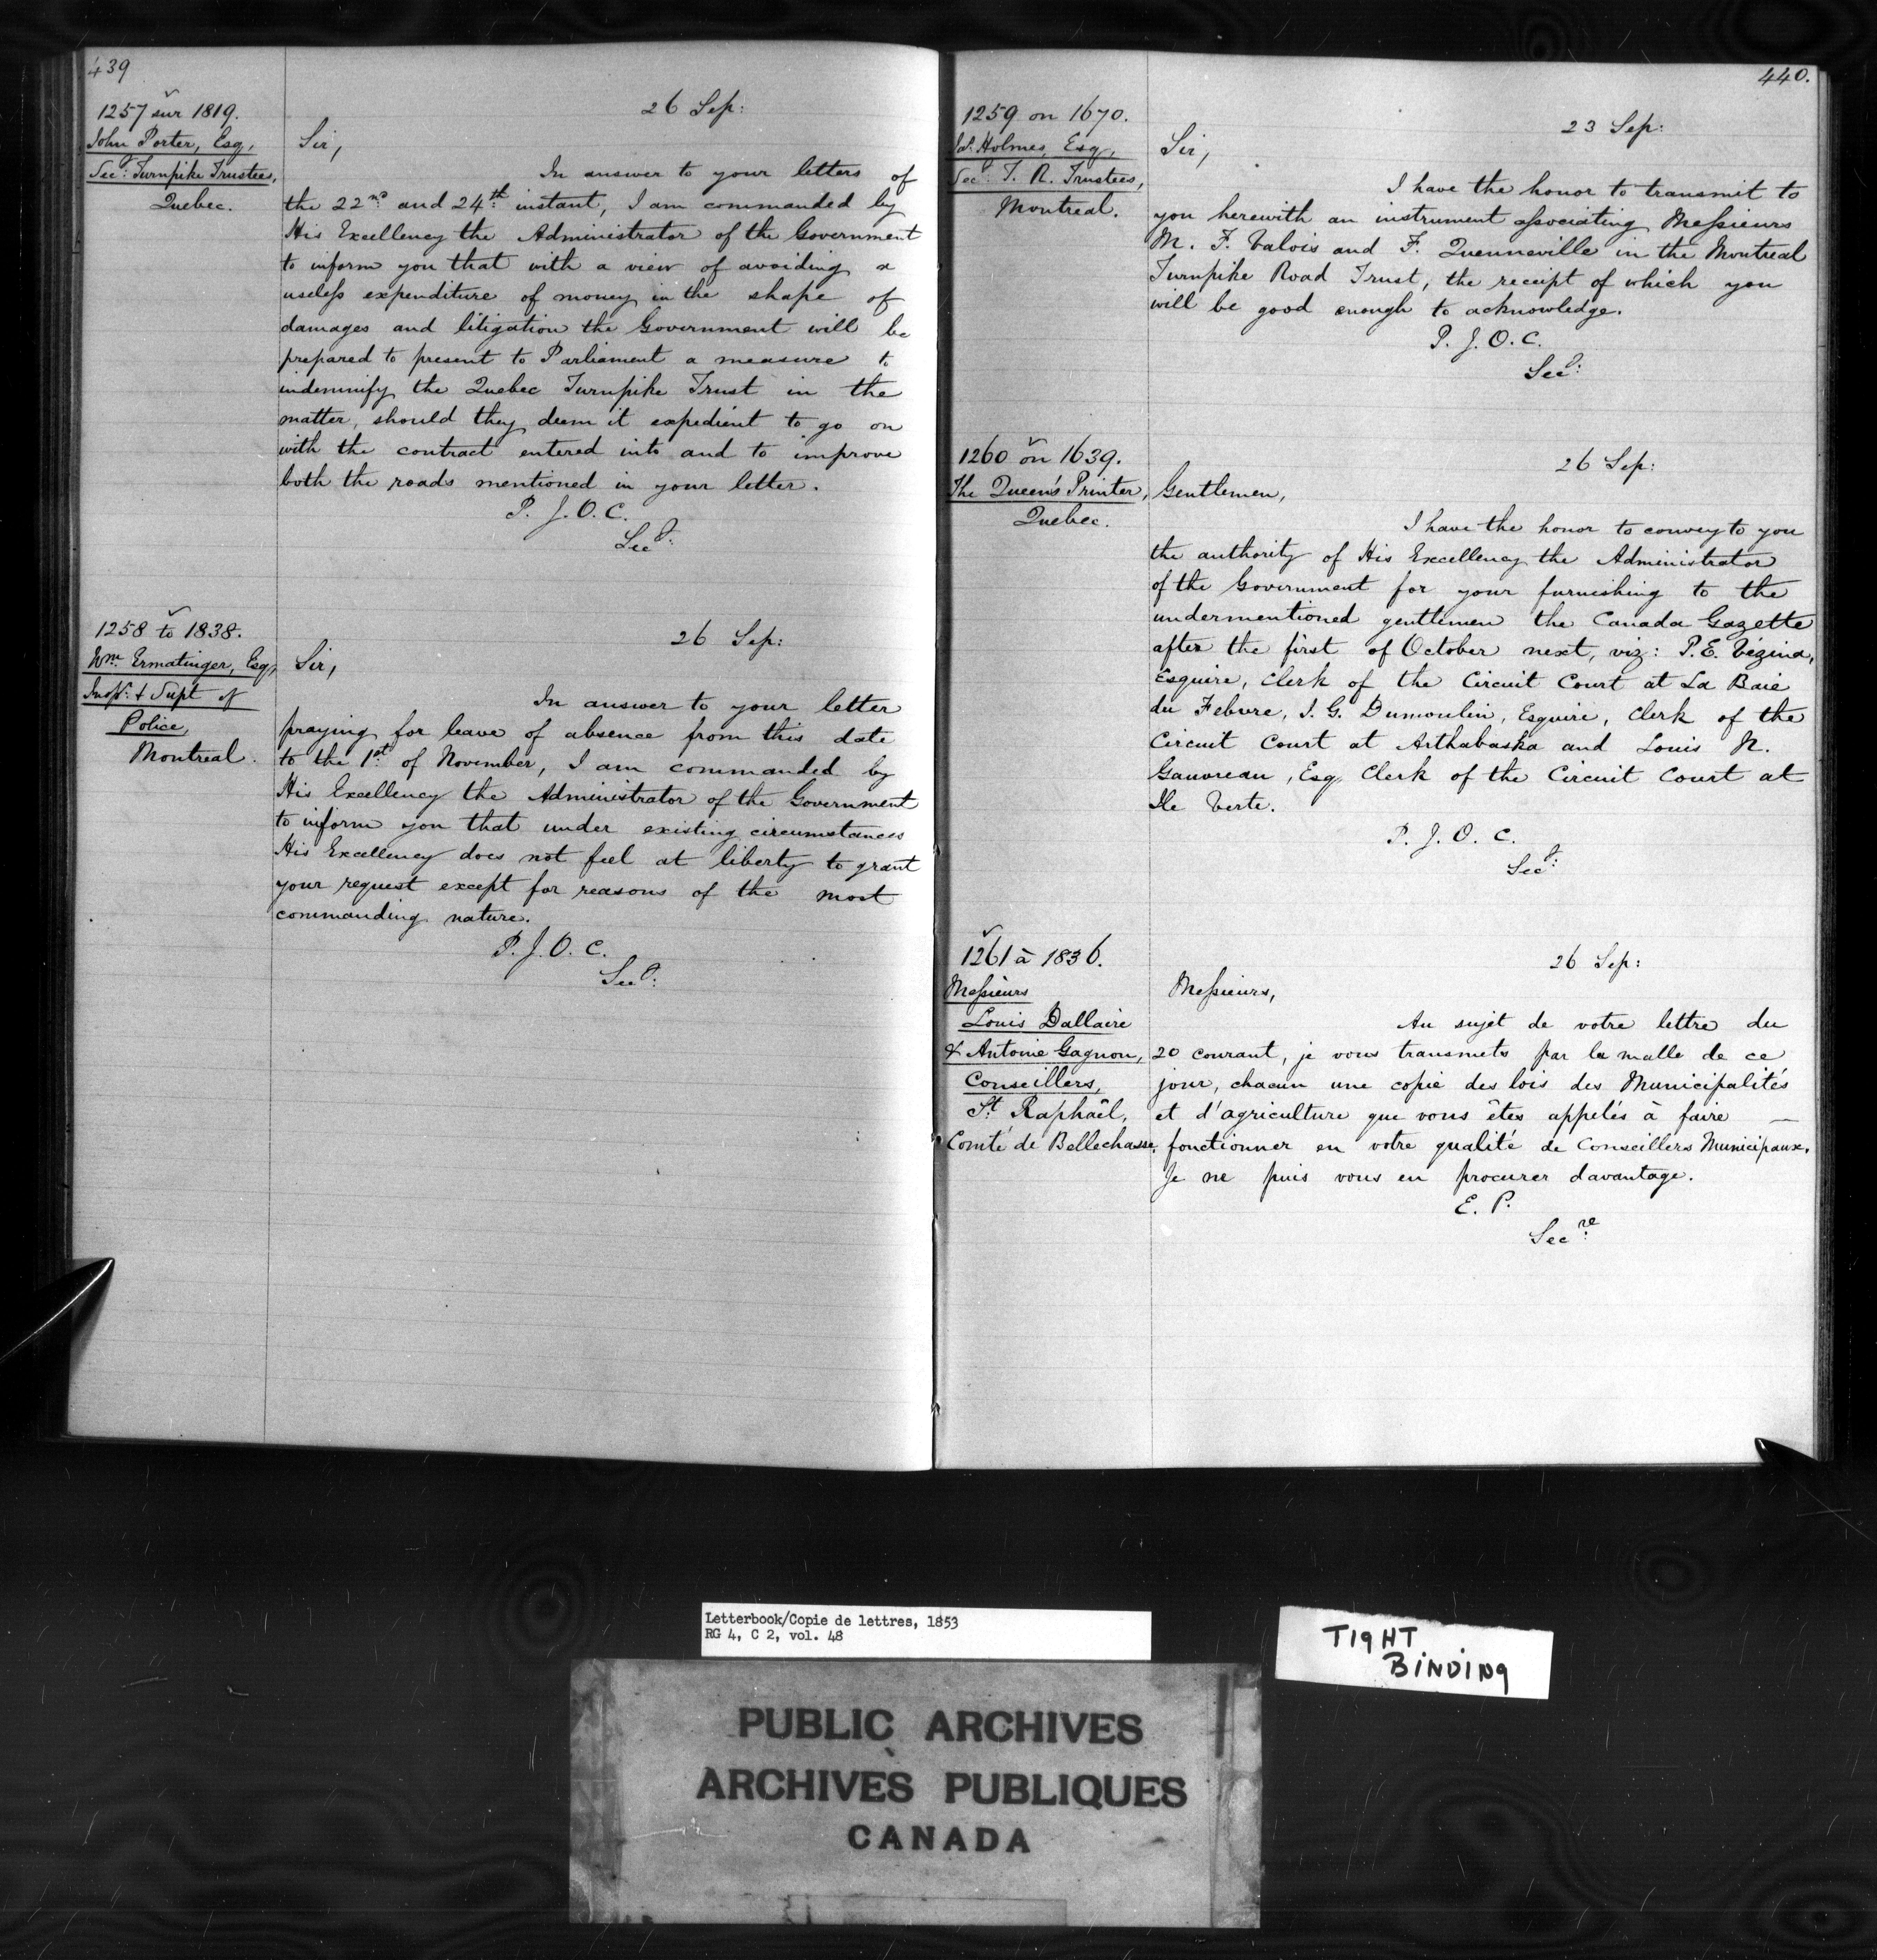 439
1257 sur 1819.
John Porter, Esq,
Secy: Turnpike Trustees,
Quebec.
26 Sep:
Sir,
In answer to your letters of
the 22nd and 24th instant, I am commanded by
His Excellency the Administrator of the Government
to inform you that with a view of avoiding a
useless expenditure of money in the shape of
damages and litigation the Government will be
prepared to present to Parliament a measure to
indemnify the Quebec Turnpike Trust in the
matter, should they deem it expedient to go on
with the contract entered into and to improve
both the roads mentioned in your letter.
P. J. O. C.
Secy:
1258 to 1838.
Wm. Ermatinger, Esq,
Inspr: & Supt of
Police,
Montreal.
26 Sep:
Sir,
In answer to your letter
praying for leave of absence from this date
to the 1st of November, I am commanded by
His Excellency the Administrator of the Government
to inform you that under existing circumstances
His Excellency does not feel at liberty to grant
your request except for reasons of the most
commanding nature.
P. J. O. C.
Secy:
440.
1259 on 1670.
Holmes, Esq,
Secy: T. R. Trustees,
Montreal.
23 Sep:
Sir,
I have the honor to transmit to
you herewith an instrument associating Messieurs
M. F. Valois and F. Quenneville in the Montreal
Turnpike Road Trust, the receipt of which you
will be good enough to acknowledge.
P. J. O. C.
Secy:
1260 on 1639.
The Queen's Printer,
Quebec.
26 Sep:
Gentlemen,
I have the honor to convey to you
the authority of His Excellency the Administrator
of the Government for your furnishing to the
undermentioned gentlemen the Canada Gazette
after the first of October next, viz: P. E. Vézina,
Esquire, Clerk of the Circuit Court at La Baie
du Febvre, I. G. Dumoulin, Esquire, Clerk of the
Circuit Court at Arthabaska and Louis N.
Gauvreau, Esq, Clerk of the Circuit Court at
Ile Verte.
P. J. O. C.
Secy:
1261 à 1836.
Messieurs
Louis Dallaire
& Antoine Gagnon,
Conseillers,
St. Raphaël,
Comté de Bellechasse.
26 Sep:
Messieurs,
Au sujet de votre lettre du
20 courant, je vous transmets par la malle de ce
jour, chacun une copie des lois des Municipalités
et d'agriculture que vous êtes appelés à faire —
fonctionner en votre qualité de Conseillers Municipaux.
Je ne puis vous en procurer davantage.
E. P.
Secre
Letterbook/Copie de lettres, 1853
RG 4, C 2, vol. 48
TIGHT
BINDING
PUBLIC ARCHIVES
ARCHIVES PUBLIQUES
CANADA